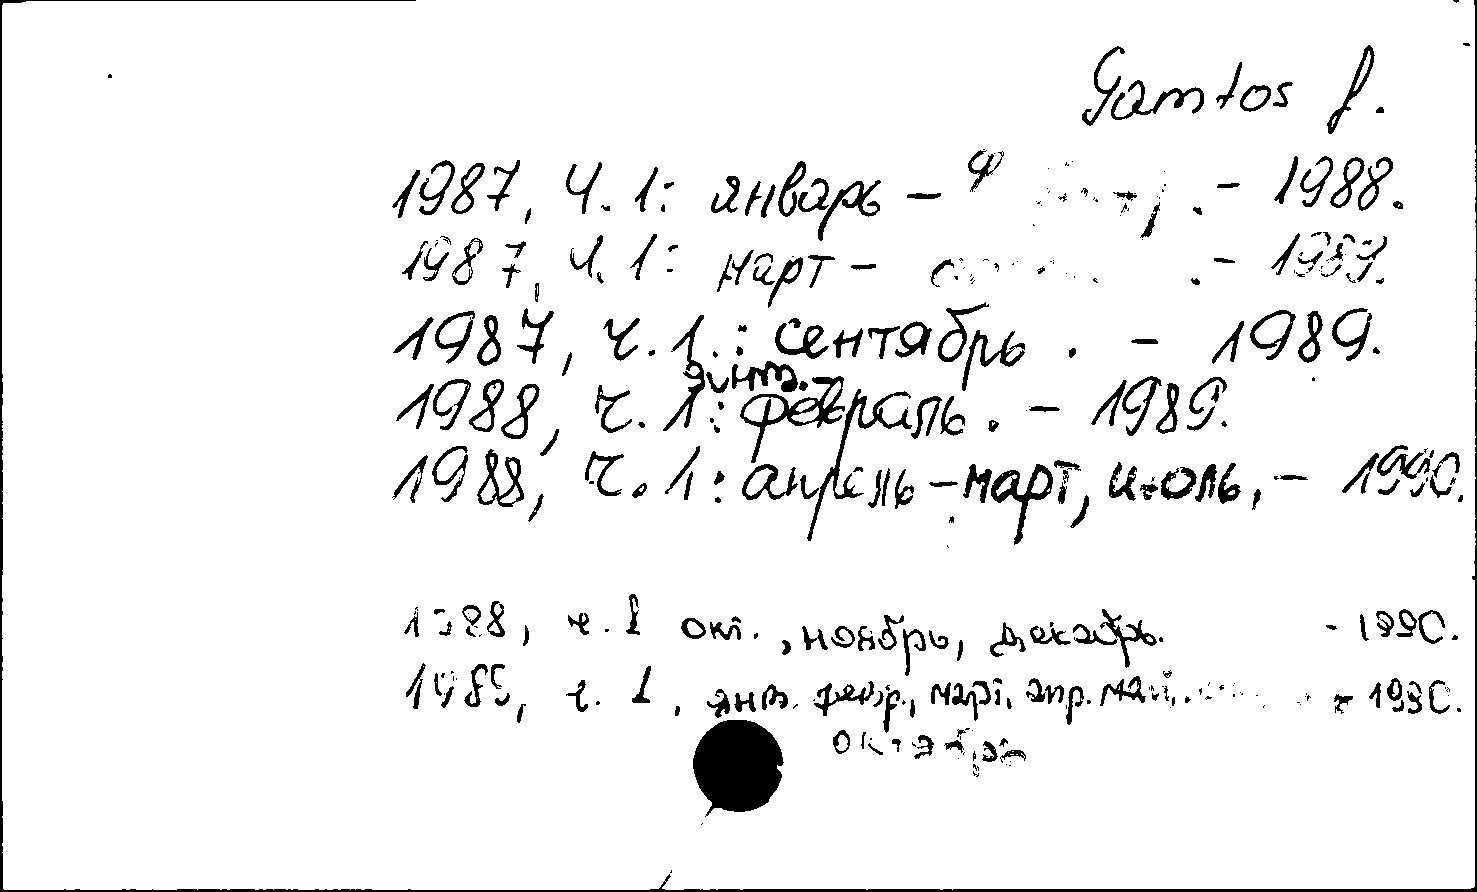 Gamtos f.
1987, Ч. 1: январь – . – 1988.
1987, Ч. 1: март – . – 1989.
1987, ч. 1.: сентябрь . – 1989.
янв. –
1988, ч. 1: февраль. – 1989.
1988, ч. 1: апрель – март, июль. – 1990.
1988, ч. 1 окт., ноябрь, декабрь. - 1990.
1989, ч. 1, янв. февр., март, апр. май, - 1990.
октябрь